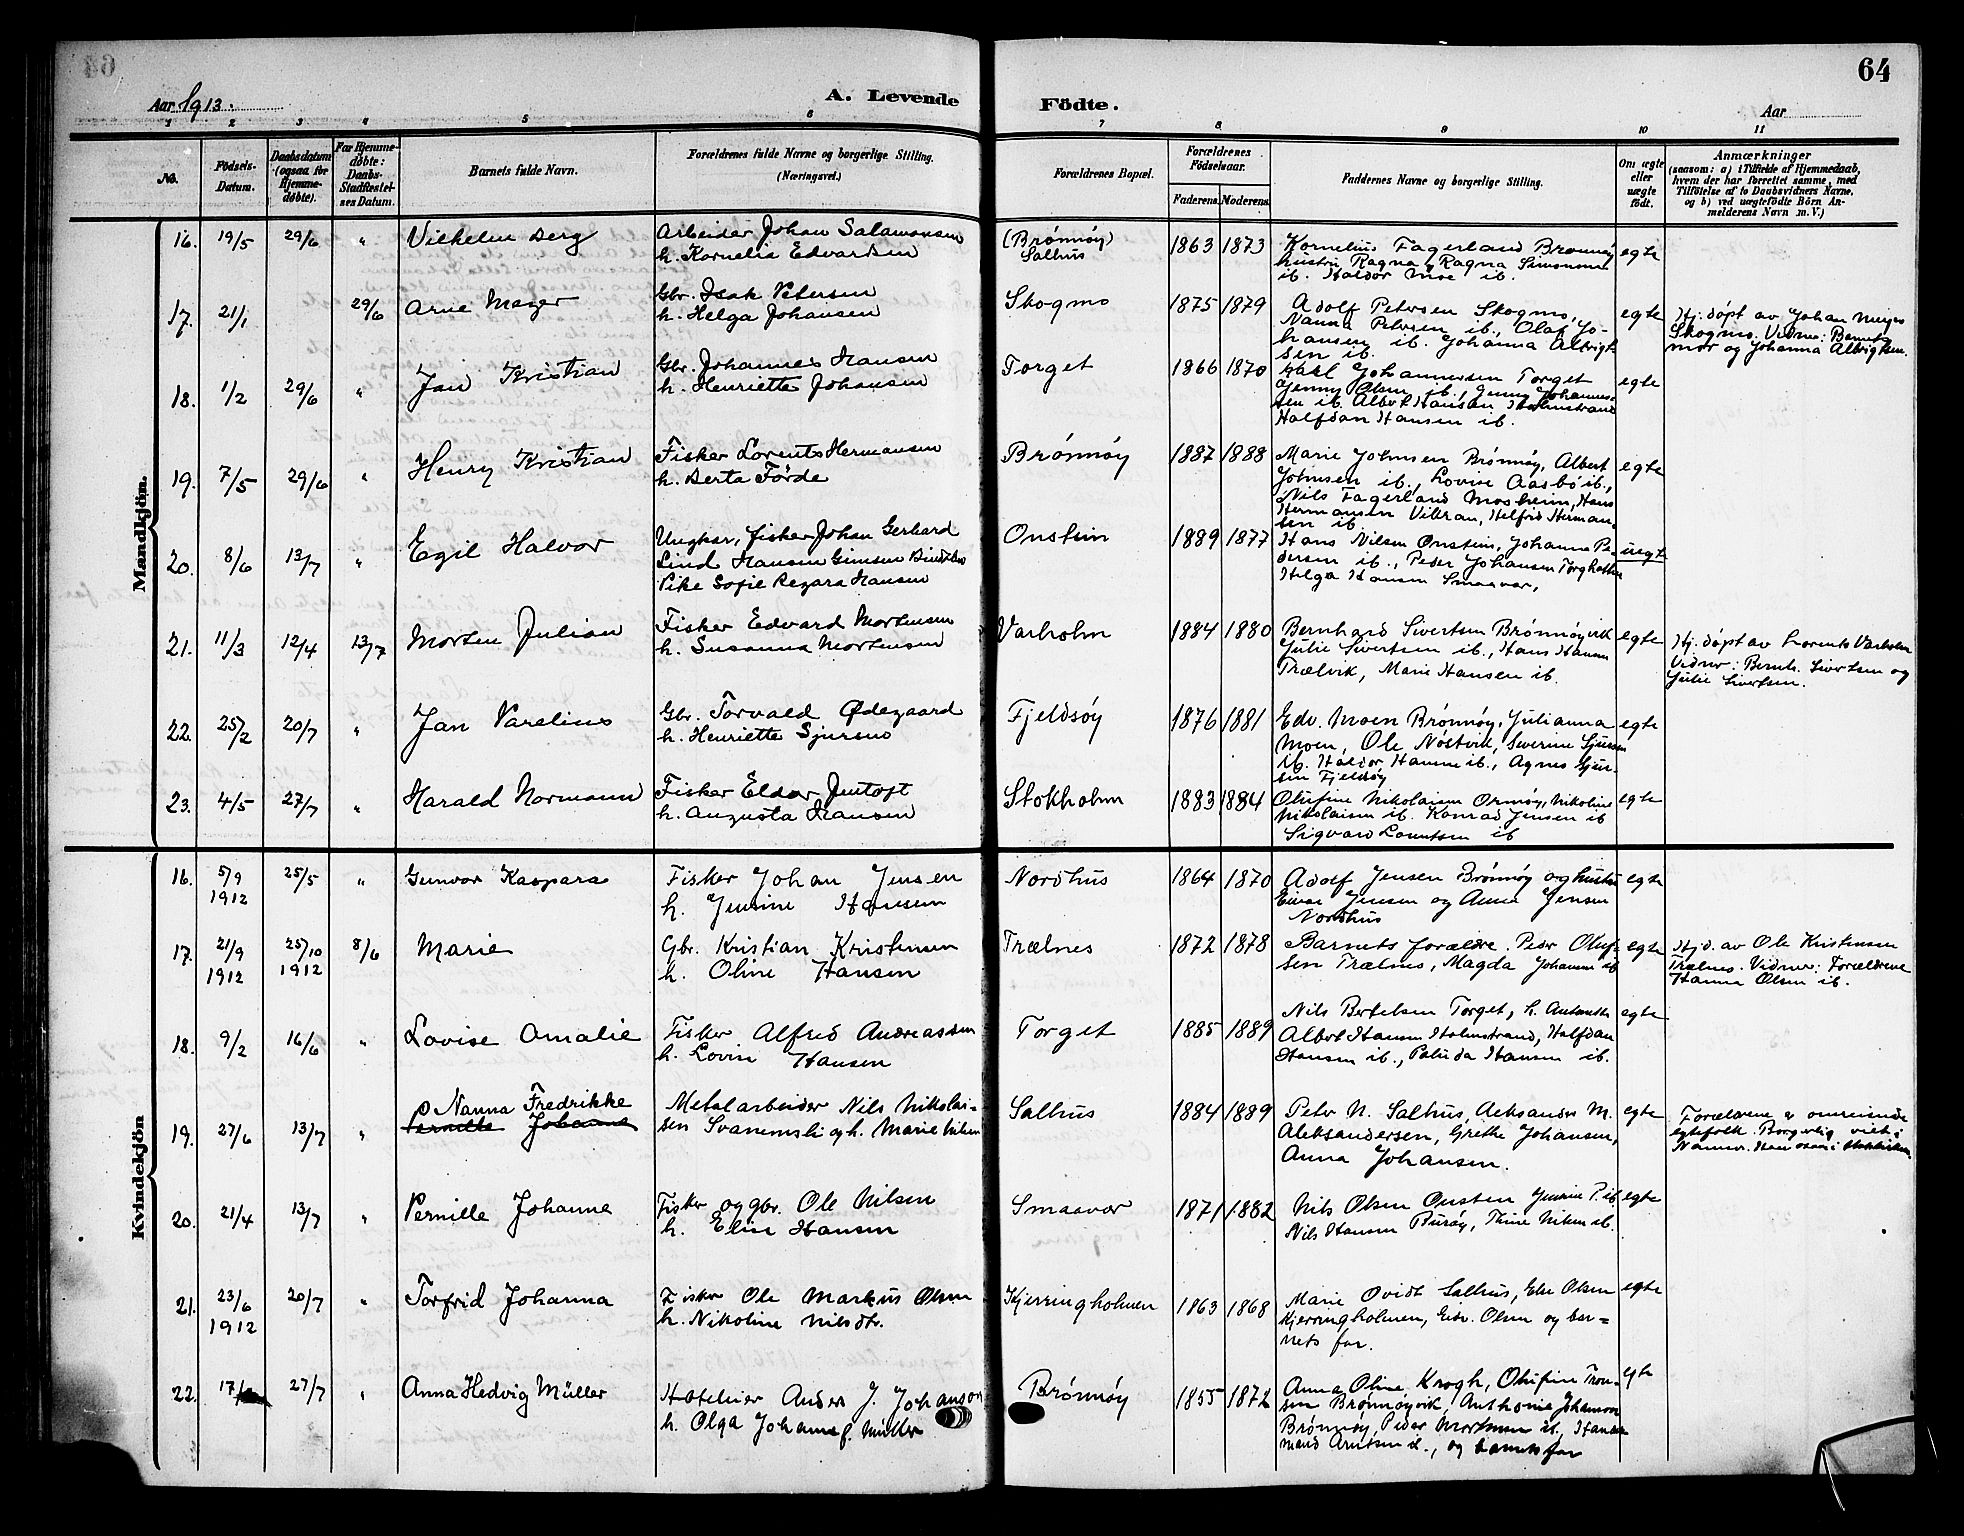 64
Aar 1913.
A. Levende Födte.
Aar
1 2 3 4 5 6 7 8 9 10 11
No.
Födsels-Datum.
Daabsdatum (ogsaa for Hjemme-døbte).
For Hjemme-døbte: Daabs-Stadfæstel-ses Datum.
Barnets fulde Navn.
Forældrenes fulde Navne og borgerlige Stilling. (Næringsvei.)
Forældrenes Bopæl.
Forældrenes Födselsaar.
Faderens. Moderens.
Faddernes Navne og borgerlige Stilling.
Om ægte eller uægte födt.
Anmærkninger
(saasom: a) i Tilfælde af Hjemmedaab,
hvem der har forrettet samme, med
Tilföielse af to Daabsvidners Navne,
og b) ved uægtefödte Börn An-
melderens Navn m. V.)
Mandkjön.
16. 19/5 29/6 " Vilhelm Berg
Arbeider Johan Salamonsen
h. Kornelia Edvardsen
(Brønnøy)
Salhus
1863 1873
Kornelius Fagerland Brønnøy
hustru Ragna, Ragna Simonsen
ib. Haldor ib.
egte
17. 21/1 29/6 Arne Mager
Gbr. Isak Petersen
h. Helga Johansen
Skogmo
1875 1879
Adolf Petersen Skogmo,
Nanna Petersen ib., Olaf Jo-
hansen ib. Johanna Albrigt-
sen ib.
egte
Hj. døpt av Johan
Skogmo. Vidner: Barnets
mor og Johanna Albrigtsen.
18. 1/2 29/6 " Jan Kristian
Gbr. Johannes Hansen
h. Henriette Johansen
Torget
1866 1870
Karl Johannessen Torget
Jenny Olsen ib., Jenny Johannes-
sen ib. Albert Hansen Holmstrand
Halfdan Hansen ib.
egte
19. 7/5 29/6 " Henry Kristian
Fisker Lorents Hermansen
h. Berta Förde
Brønnøy
1887 1888
Marie Johnsen Brønnøy, Albert
Johnsen ib., Lovise Aasbö ib.,
Nils Fagerland Mosheim, Hans
Hermansen Vikran, Helfrid Herman-
sen ib.
egte
20. 8/6 13/7 " Egil Halvor
Ungkar, fisker Johan Gerhard
Lind Hansen Gimsen
Pike Sofie Regara Hansen
Onstein
1889 1877
Hans Nilsen Onstein, Johanna Pe-
dersen ib., Peder Johansen Torghatten
Helga Hansen Smaavær,
uegte
21. 11/3 12/4 13/7 Morten Julian
Fisker Edvard Mortensen
h. Susanna Mortensen
Varholm
1884 1880
Bernhard Sivertsen Brønnøyvik
Julie Sivertsen ib., Hans Hansen
Trælvik, Marie Hansen ib.
egte
Hj. døpt av Lorents Varholm
Vidner: Bernh. Sivertsen og
Julie Sivertsen.
22. 25/2 20/7 " Jan Varelius
Gbr. Torvald Ødegaard
h. Henriette Sjursno
Fjeldsøy
1876 1881
Edv. Moen Brønnøy, Julianna
Moen, Ole Nöstvik, Severine Sjursen
ib. Haldor Hansen ib., Agnes Sjur-
sen Fjeldsøy
egte
23. 4/5 27/7 " Harald Normann
Fisker Eldar Jentoft
h. Augusta Hansen
Stokholm
1883 1884
Olufine Nikolaisen Ormøy, Nikolius
Nikolaisen ib. Konrad Jensen ib
Sigvard Lorentsen ib
egte
Kvindekjön
16. 5/9 1912 25/5 " Gunvor Kaspara
Fisker Johan Jensen
h. Jensine Hansen
Nordhus
1864 1870
Adolf Jensen Brønnøy og hustru
Jensen og Anna Jensen
Nordhus
egte
17. 21/9 1912 25/10 1912 8/6 Marie
Gbr. Kristian Kristensen
h. Oline Hansen
Trælnes
1872 1878
Barnets forældre. Peder Oluf-
sen Trælnes, Magda Johansen ib
egte
Hjd. av Ole Kristensen
Trælnes. Vidner: Forældrene
Hanna Olsen ib.
18. 9/2 16/6 " Lovise Amalie
Fisker Alfred Andreassen
h. Lovin Hansen
Torget
1885 1889
Nils Bertelsen Torget, h. Antonette
Albert Hansen Holmstrand, Halfdan
Hansen ib., Palida Hansen ib.
egte
19. 27/6 13/7 " Nanna Fredrikke
Pernille Johanne
Metalarbeider Nils Nikolai-
sen Svanemsli og h. Marie Nilsen
Salhus
1884 1889
Peter N. Salhus, Aeksander M.
Aleksandersen, Grethe Johansen,
Anna Johansen.
egte
Forældrene er omreisende
egtefolk. Borgerlig viet i
20. 21/4 13/7 " Pernille Johanne
Fisker og gbr. Ole Nilsen
h. Elin Hansen
Smaavær
1871 1882
Nils Olsen Onsten Jensine P. ib.
Nils Hansen Burøy, Trine Nilsen ib.
egte
21. 23/6 1912 20/7 " Torfrid Johanna
Fisker Ole Markus Olsen
h. Nikoline Nilsdtr.
Kjerringholmen
1863 1868
Marie Ovidt Salhus, Else Olsen
Kjerringholmen, Edv. Olsen og bar-
nets far.
egte
22. 17/ 27/7 " Anna Hedvig Müller
Hoteleier Anders J. Johanson
h. Olga Johanne f. Müller
Brønnøy
1855 1872
Anna Oline Krogh, Olufine Tron-
sen Brønnøyvik, Anthonie Johanson
Brønnøy, Peder Mortensen ib., Hans
mand Arntsen ib., og barnets far
egte